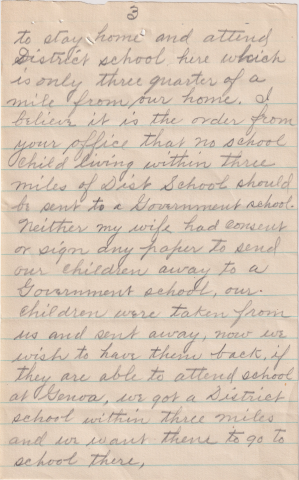 3
to stay home and attend
District school here which
is only three quarter of a
mile from our home. I
believe it is the order from
your office that no school
child living within three
miles of Dist School should
be sent to a Government school.
Neither my wife had consent
or sign any paper to send
our children away to a
Government school, our.
children were taken from
us and sent away, now we
wish to have them back, if
they are able to attend school
at Genoa, we got a District
school within three miles
and we want them to go to
school there,